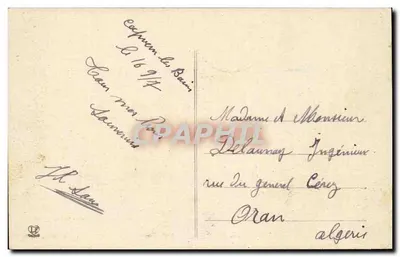 Capvern les Bains
le 16 9/7
Tous mes
Souvenirs
Madame & Monsieur
Delaunay Ingénieur
rue du general Cérez
Oran
algerie
CPAPHIL